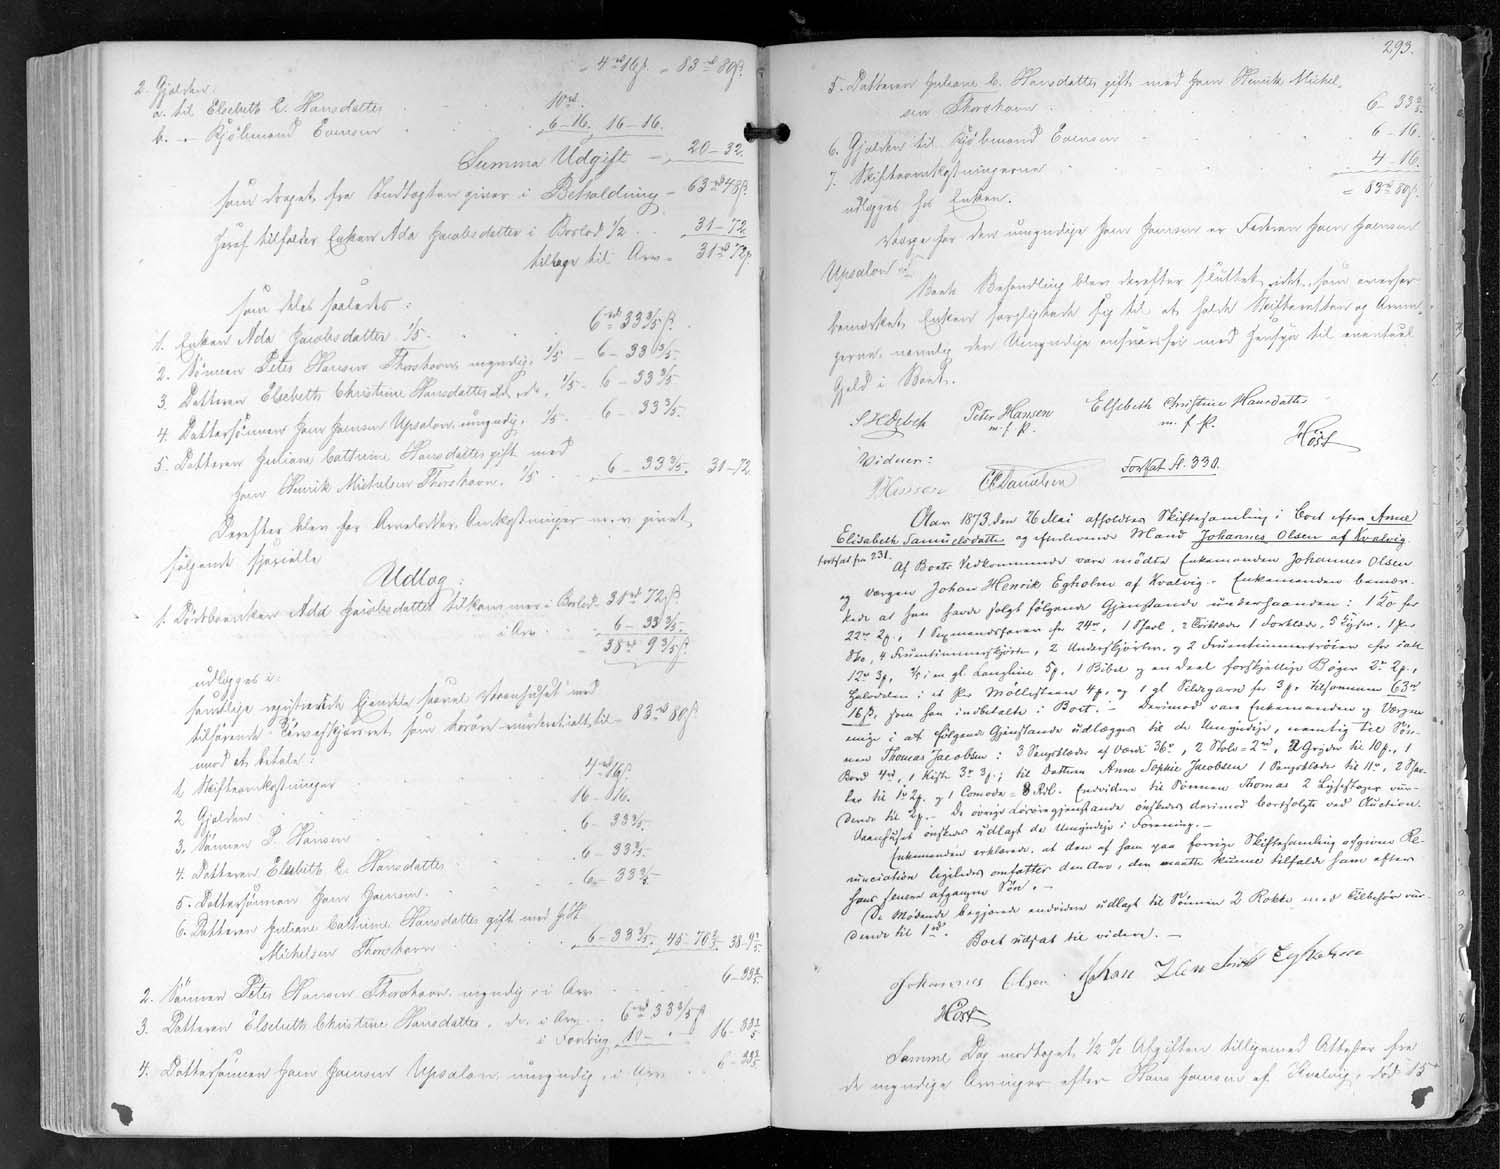 4 rd 16 ß. 83 rd 80 ß.
2. Gjælden:
a. til Elsebeth C. Hansdatter 10 rd.
b. - Kjøbmand Evensen 6-16. 16-16.
Summa Udgift - 20-32.
som draget fra Indtægten giver i Beholdning - 63 rd 48 ß.
Heraf tilfalder Enken Ada Jacobsdatter i Boslod 1/2 31-72.
tilbage til Arv - 31 rd 72 ß.
som deles saaledes:
1. Enken Ada Jacobsdatter 1/5. 6 rd 33 3/5 ß.
2. Sønnen Peter Hansen Thorshavn, myndig, 1/5 - 6-33 3/5.
3. Datteren Elsebeth Christine Hansdatter, do., 1/5 - 6-33 3/5.
4. Dattersønnen Hans Hansen Upsalon, umyndig, 1/5. 6-33 3/5.
5. Datteren Juliane Cathrine Hansdatter gift med
Hans Henrik Michelsen Thorshavn, 1/5 6-33 3/5. 31-72.
Derefter blev for Arvelodder, Omkostninger m. v. givet
følgende specielle
Udlog:
1. Enken Ada Jacobsdatter tilkommer i Boslod 31 rd 72 ß.
i Arv 6-33 3/5
38 rd 9 3/5 ß
udlægges i:
samtlige registrerede Eiendele saavel Vaaenhuset med
tilhørende som Løsøre vurderet ialt til - 83 rd 80 ß.
mod at betale:
1. Skifteomkostninger 4 rd 16 ß.
2. Gjælden 16-16.
3. Sønnen P. Hansen 6-33 3/5.
4. Datteren Elsebeth C. Hansdatter 6-33 3/5.
5. Dattersønnen Hans Hansen 6-33 3/5.
6. Datteren Juliane Cathrine Hansdatter gift med
Michelsen Thorshavn 6-33 3/5. 45-70 2/5 38-9 3/5
2. Sønnen Peter Hansen Thorshavn, myndig, i Arv 6-33 3/5
3. Datteren Elsebeth Christine Hansdatter, do. i Arv 6 rd 33 3/5 ß
i Fordring 10- 16-33 3/5
4. Dattersønnen Hans Hansen Upsalon, umyndig, i Arv 6-33 3/5
293.
5. Datteren Juliane C. Hansdatter gift med Hans Henrik Michel-
sen Thorshavn 6-33 3/5.
6. Gjælden til Kjøbmand Evensen 6-16.
7. Skifteomkostningerne 4-16.
udlægges hos Enken. = 83 rd 80 ß.
Værge for den umyndige Hans Hansen er Faderen Hans Hansen
Upsalon
Boets Behandling blev derefter sluttet, idet som ovenfor
bemærket Enken forpligtede sig til at holde Skifteretten og Arvin-
gerne, navnlig den Umyndige ansvarsfri med Hensyn til eventuel
Gjeld i Boet.
S H Debeh Peter Hansen Elsebeth Christine Hansdatter
m. f. P. m. f. P.
Høst
Vidner:
Hansen Danielsen Fortsat A. 330.
Aar 1873 den 26 Mai afholdtes Skiftesamling i Boet efter Anne
Elisabeth Samuelsdatter og efterlevende Mand Johannes Olsen af Kvalvig
fortsat fra 231. Af Boets Vedkommende vare mødte Enkemanden Johannes Olsen
og Værgen Johan Henrik Egholm af Kvalvig. - Enkemanden bemær-
kede at han havde solgt følgende Gjenstande underhaanden: 1 Ko for
22 rd 2 ß., 1 Sexmandsfaren for 24 rd, 1 Sharl, 2 1 Forklæde, 3 , 1 Par
Sko, 4 Fruentimmerskjørter, 2 Underskjørter, og 2 Fruentimmertrøier for ialt
12 rd 3 ß, i en gl. Langline 5 ß, 1 Bibel og en deel forskjellige Bøger 2 rd 2 ß.,
Halvdelen i et Par Møllesteen 4 ß, og 1 gl Sildegarn for 3 ß, tilsammen 63 rd
16 ß, som han indbetalte i Boet. - Derimod vare Enkemanden og Værgen
enige i at følgende Gjenstande udlægges til de Umyndige, nemlig til Søn-
nen Thomas Jacobsen: 3 Sengklæder af Værdi 36 rd, 2 Stole = 2 rd, 2 Gryder til 10 ß, 1
Bord 4 rd, 1 Kiste 3 rd 3 ß; til Datteren Anne Sophie Jacobsen 1 Sengklæder til 11 rd, 2 Shar-
ler til 1 rd 2 ß og 1 Comode = 8 Rd. Endvidere til Sønnen Thomas 2 Lysestager vur-
derede til 2 ß. - De øvrige Løsøregjenstande ønskedes derimod bortsolgte ved Auction.
Vaanhuset ønskes udlagt de Umyndige i Forening. -
Enkemanden erklærede, at den af ham paa forrige Skiftesamling afgivne Re-
nunciation ligeledes omfatter den Arv, der maatte kunne tilfalde ham efter
hans senere afgangne Søn. -
De Mødende begjærede endvidere udlagt til Sønnen 2 Rokke med Tilbehør vur-
derede til 1 rd.
Boet udsat til videre. -
Johannes Olsen Johan Hendrik Egholm
Høst
Samme Dag modtoges 1/2 % Afgiften tilligemed Attester fra
de myndige Arvinger efter Hans Hansen af Kvalvig, død 15